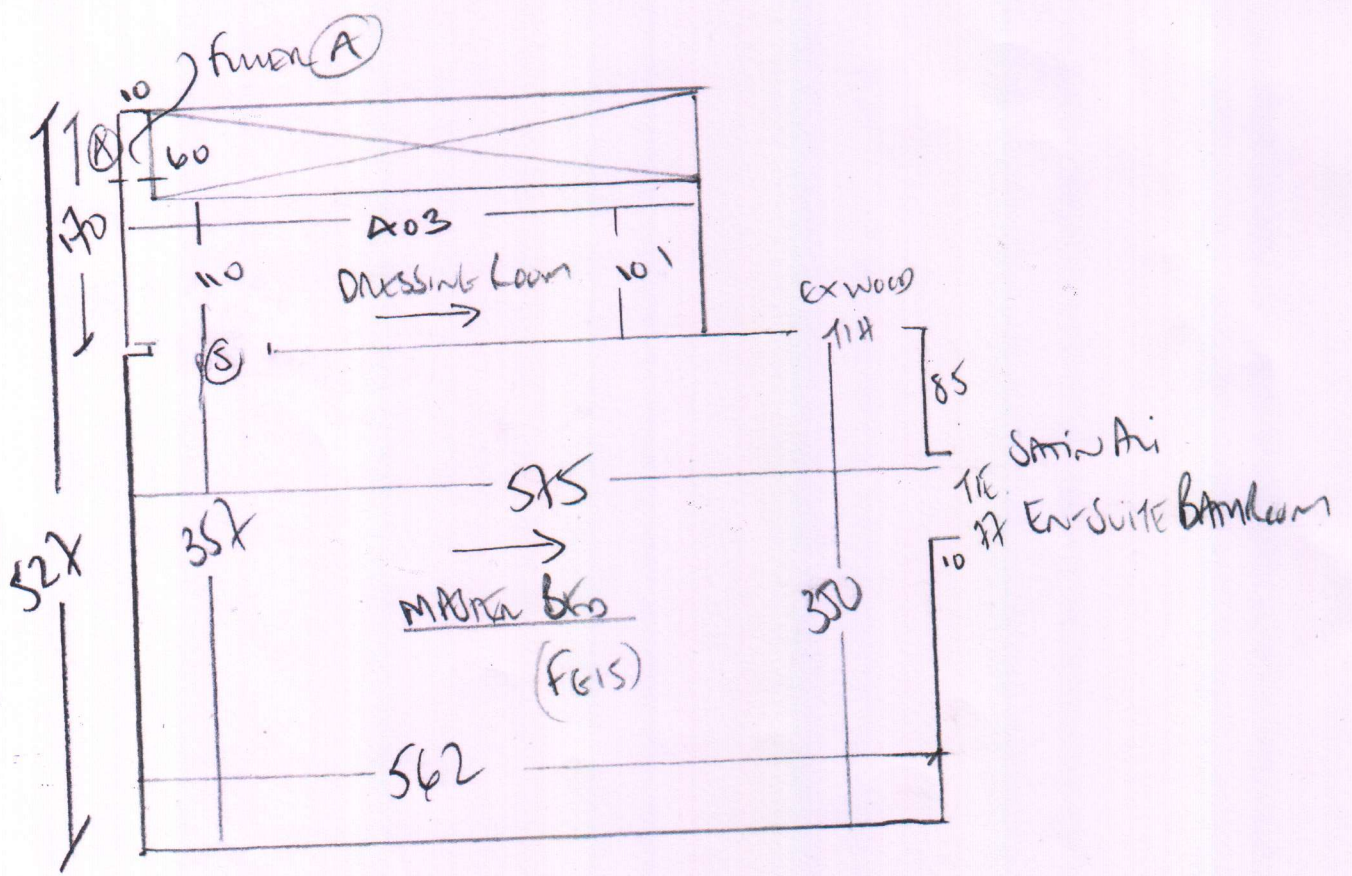 10
FILLER (A)
(A)
60
170
403
110
DRESSING ROOM
101
EX WOOD
T/H
(S)
85
575
SATIN ALI
T/E
77
EN-SUITE BATHROOM
10
527
357
MASTER BED
350
(FG15)
562